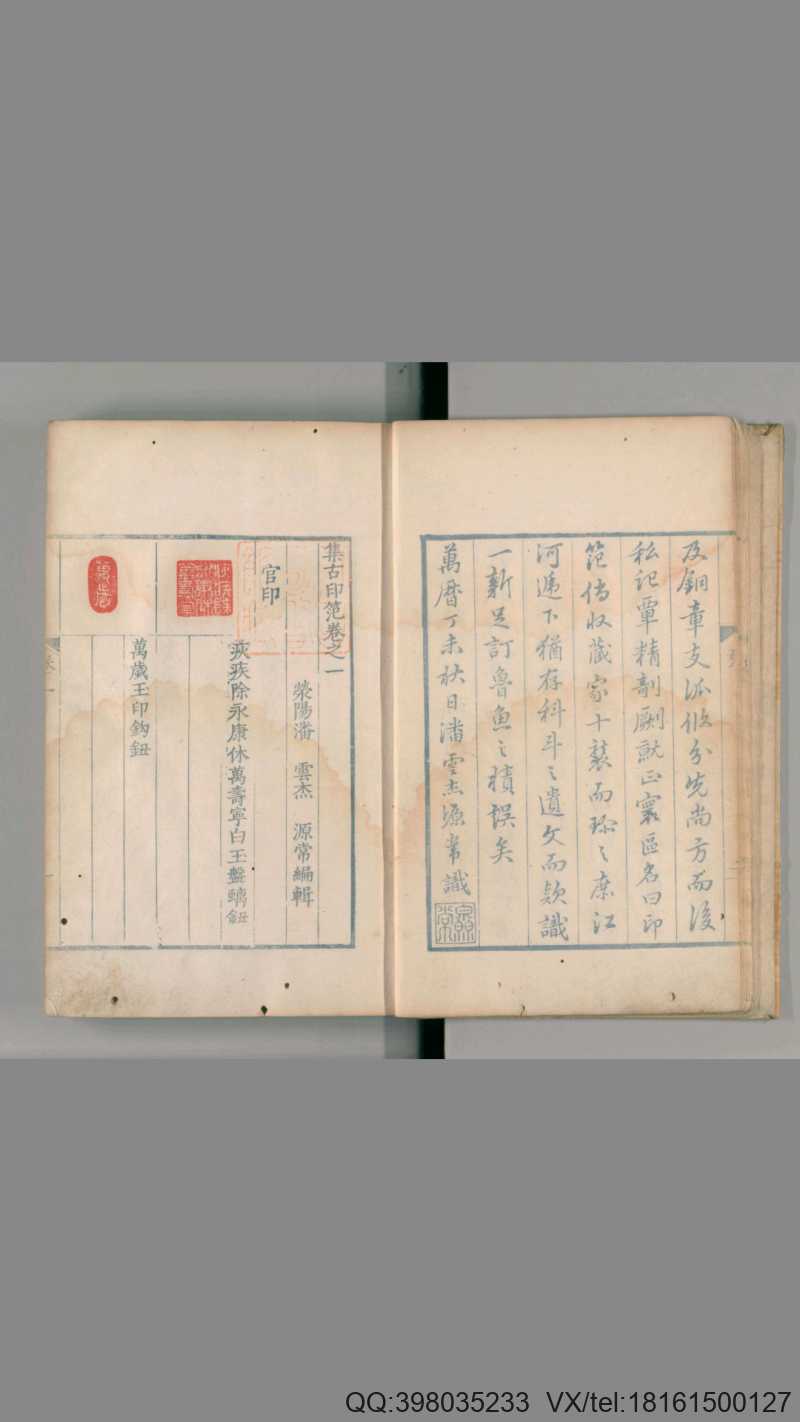 及銅章支派條分先尚方而後
私記覃精剞劂就正寰區名曰印
范傳收藏家十襲而珍之庶江
河遞下猶存科斗之遺文而款識
一新足訂魯魚之積誤矣
萬曆丁未秋日潘雲杰源常識
源常
集古印范卷之一
滎陽潘 雲杰 源常編輯
官印
疢疾除永康休萬壽寧白玉盤螭鈕
疢疾除永康休萬壽寧
萬歲玉印鈎鈕
萬歲
QQ:398035233 VX/tel:18161500127